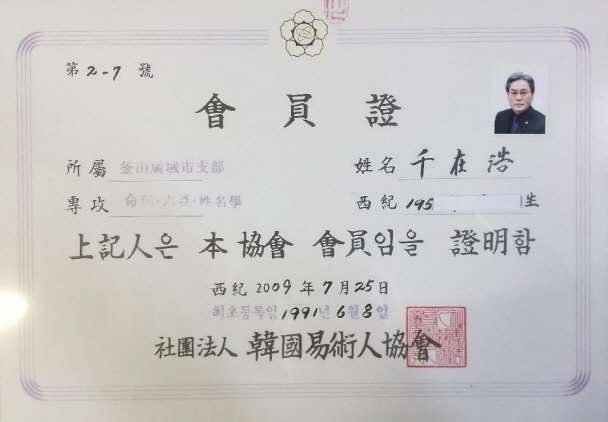 第 2-7 號
會員證
所屬 釜山廣域市支部
姓名 千在浩
專攻 姓名學
西紀 195 生
上記人은 本協會 會員임을 證明함
西紀 2009 年 7 月 25 日
최초등록일 1991년 6월 8일
社團法人 韓國易術人協會